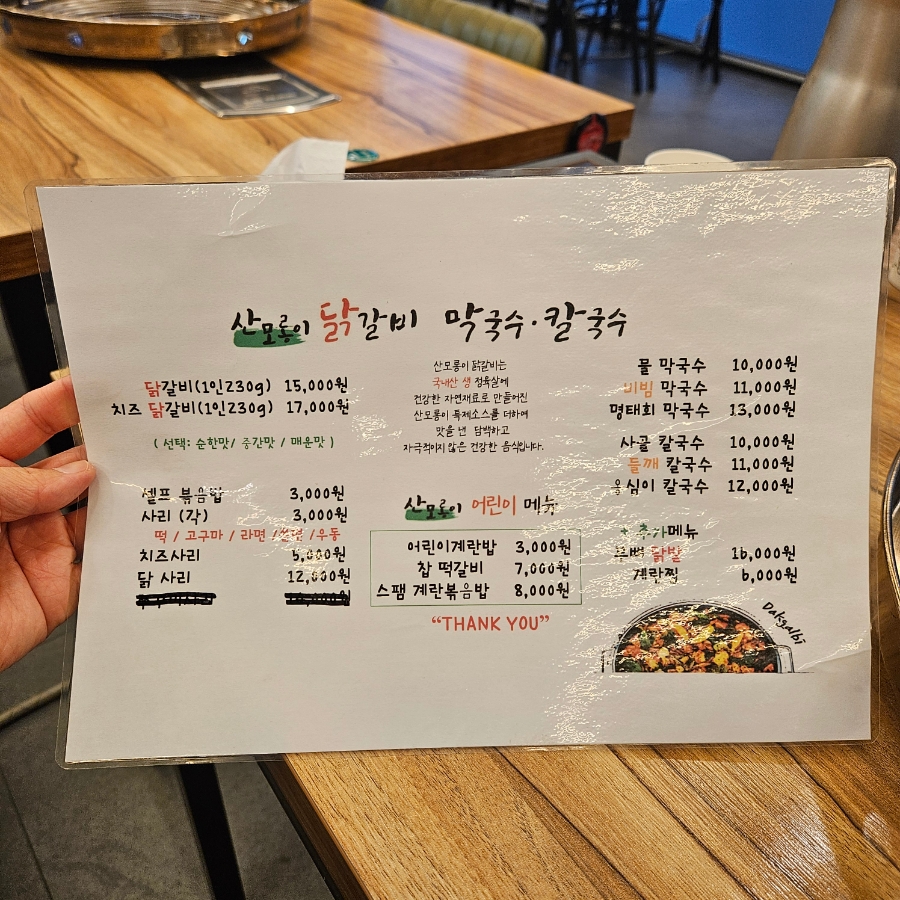 산모롱이 닭갈비 막국수·칼국수
닭갈비(1인230g) 15,000원
치즈 닭갈비(1인230g) 17,000원
( 선택: 순한맛/ 중간맛 / 매운맛 )
셀프 볶음밥 3,000원
사리 (각) 3,000원
떡 / 고구마 / 라면 / 쫄면 / 우동
치즈사리 5,000원
닭 사리 12,000원
산모롱이 닭갈비는
국내산 생 정육살에
건강한 자연재료로 만들어진
산모롱이 특제소스를 더하여
맛을 낸 담백하고
자극적이지 않은 건강한 음식입니다.
산모롱이 어린이 메뉴
어린이계란밥 3,000원
찹 떡갈비 7,000원
스팸 계란볶음밥 8,000원
“THANK YOU”
물 막국수 10,000원
비빔 막국수 11,000원
명태회 막국수 13,000원
사골 칼국수 10,000원
들깨 칼국수 11,000원
옹심이 칼국수 12,000원
+ 추가메뉴
닭발
계란찜 6,000원
Dakgalbi